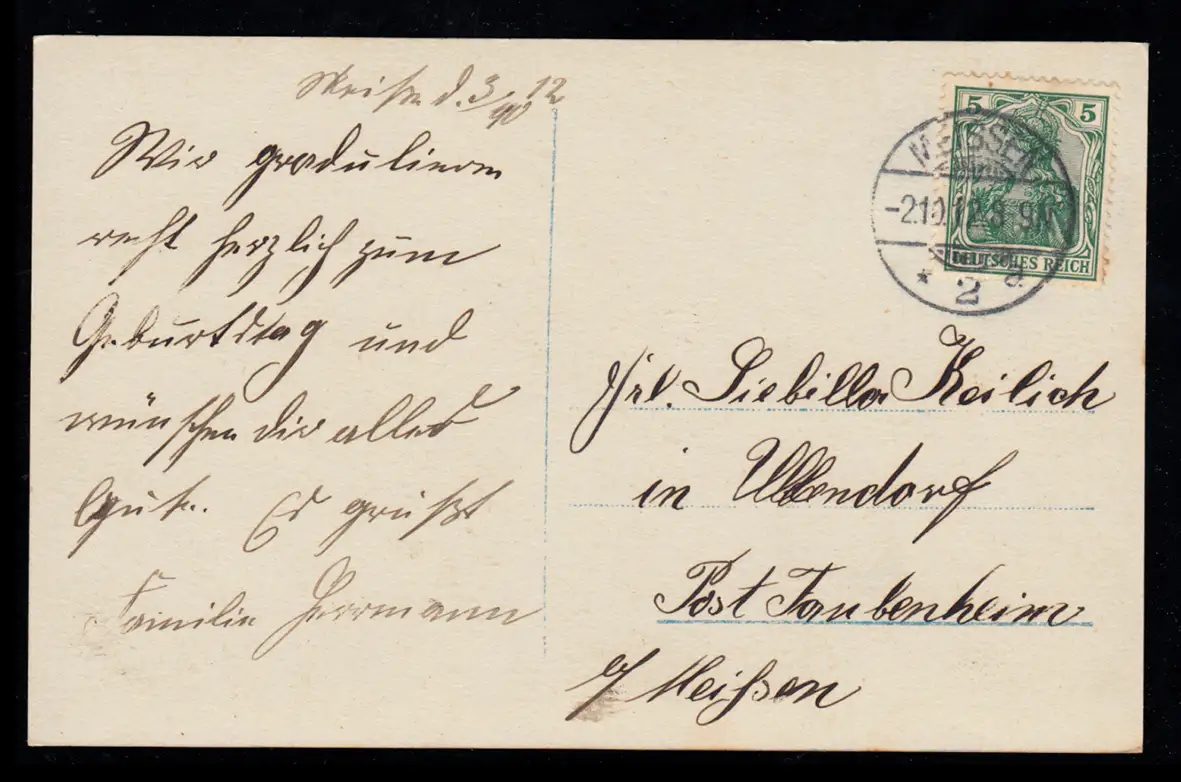 Meißen d. 3/10 12
Wir gradulieren
recht herzlich zum
Geburtstag und
wünschen dir alles
Gute. Es grüßt
Familie Herrmann
5 5
MEISSEN
-2.10.12.8-9N
DEUTSCHES REICH
* 2 d
Frl. Siebilla Keilich
in Ullendorf
Post Taubenheim
a/ Meißen